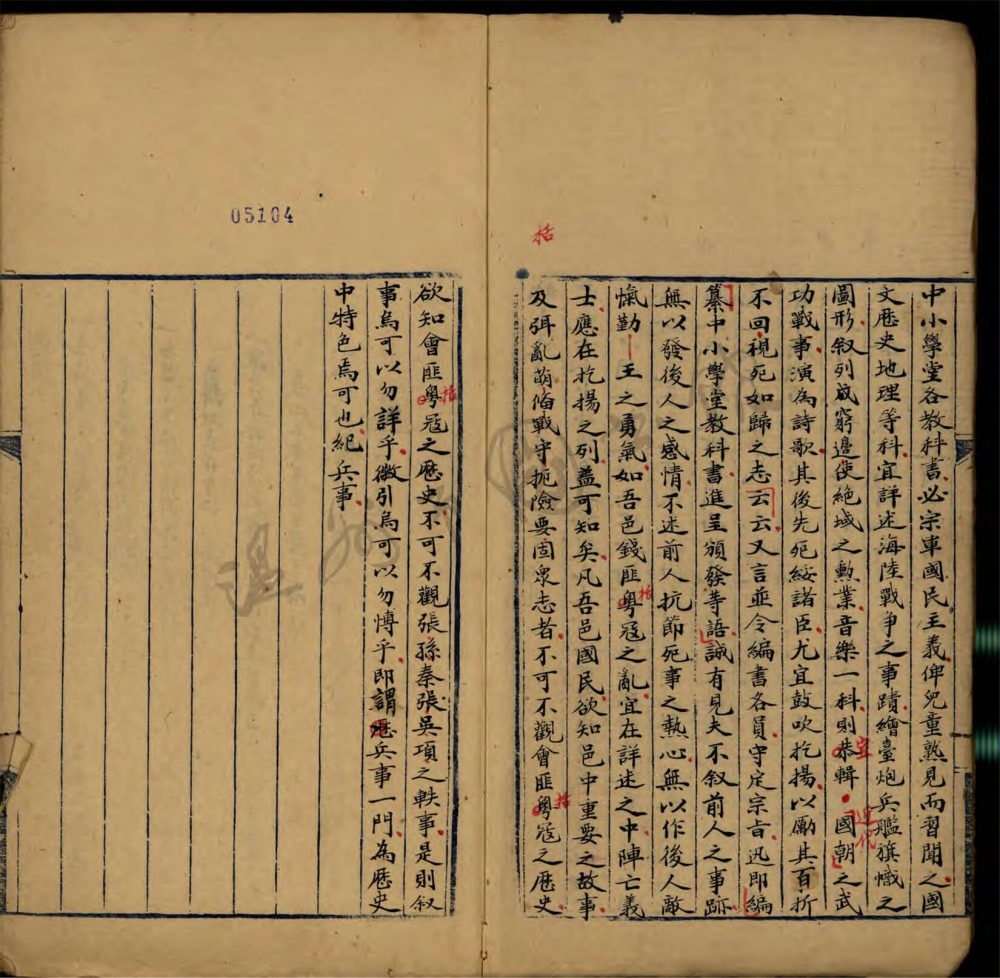 中小學堂各教科書必宗軍國民主義俾兒童熟見而習聞之國
文歷史地理等科宜詳述海陸戰爭之事蹟繪臺炮兵艦旗幟之
圖形叙列成窮邊使絶域之勲業音樂一科則恭輯國朝之武
宜
近代
功戰事演為詩歌其後先死綏諸臣尤宜鼓吹抗揚以勵其百折
不回視死如歸之志云云又言並令編書各員守定宗旨迅即編
纂中小學堂教科書進呈頒發等語誠有見夫不叙前人之事跡
無以發後人之感情不述前人抗節死事之熱心無以作後人敵
愾勤王之勇氣如吾邑錢匪粵寇之亂宜在詳述之中陣亡義
括
士應在抗揚之列蓋可知矣凡吾邑國民欲知邑中重要之故事
及弭亂萌脩戰守扼險要固衆志者不可不觀會匪粵寇之歷史
括
括
欲知會匪粵寇之歷史不可不觀張孫秦張吳項之軼事是則叙
括
事烏可以勿詳乎徵引烏可以勿博乎即謂兵事一門為歷史
中特色焉可也紀兵事
05104